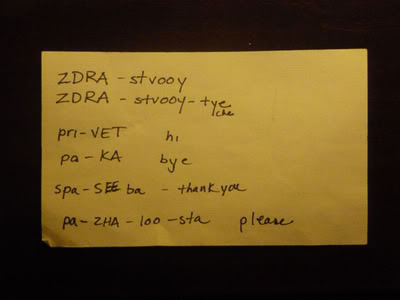 ZDRA - stvooy
ZDRA - stvooy - tye
che
pri-VET hi
pa-KA bye
spa-SEE ba - thank you
pa-ZHA-loo-sta please